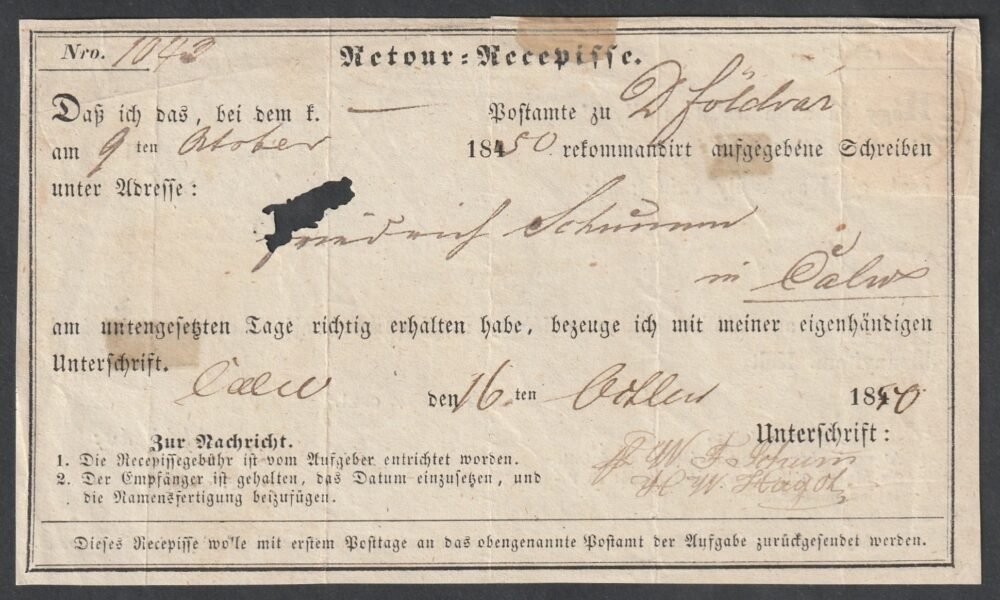 Nro. 1043
Retour-Recepisse.
Daß ich das, bei dem k. — Postamte zu D földvár
am 9 ten October 18450 rekommandirt aufgegebene Schreiben
unter Adresse:
Friedrich
in Calw
am untengesetzten Tage richtig erhalten habe, bezeuge ich mit meiner eigenhändigen
Unterschrift.
Calw den 16 ten 1850
Unterschrift:
Zur Nachricht.
1. Die Recepissegebühr ist vom Aufgeber entrichtet worden.
2. Der Empfänger ist gehalten, das Datum einzusetzen, und
die Namensfertigung beizufügen.
Dieses Recepisse wolle mit erstem Posttage an das obengenannte Postamt der Aufgabe zurückgesendet werden.